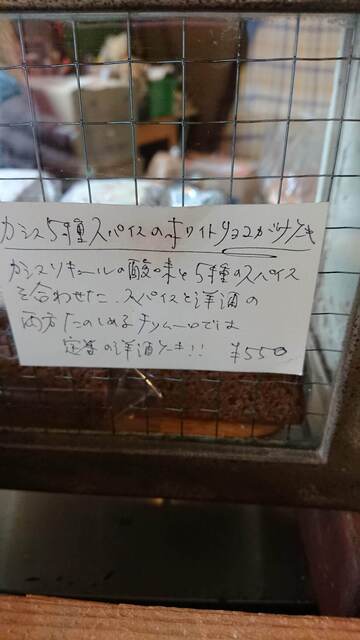 カシス5種スパイスのホワイトチョコがけケーキ
カシスリキュールの酸味と5種のスパイス
を合わせた、スパイスと洋酒の
両方たのしめる では
定番の洋酒ケーキ!! ¥550